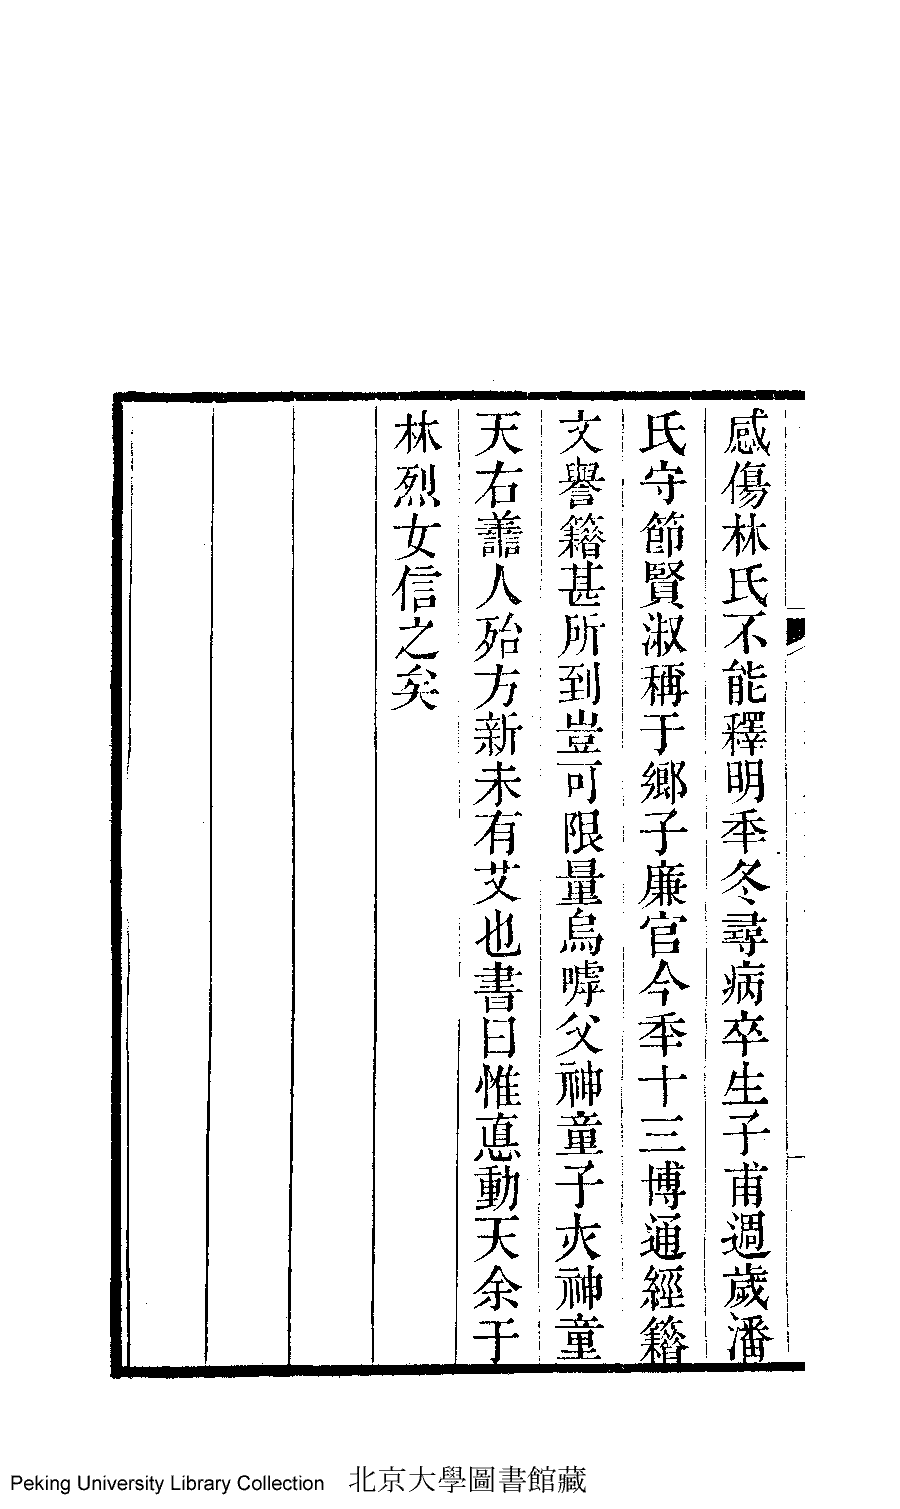 感傷林氏不能釋明秊冬尋病卒生子甫週歲潘
氏守節賢淑稱于鄉子廉官今秊十三博通經籍
文譽籍甚所到豈可限量烏嘑父神童子亦神童
天右譱人殆方新未有艾也書曰惟悳動天余于
林烈女信之矣
Peking University Library Collection 北京大學圖書館藏